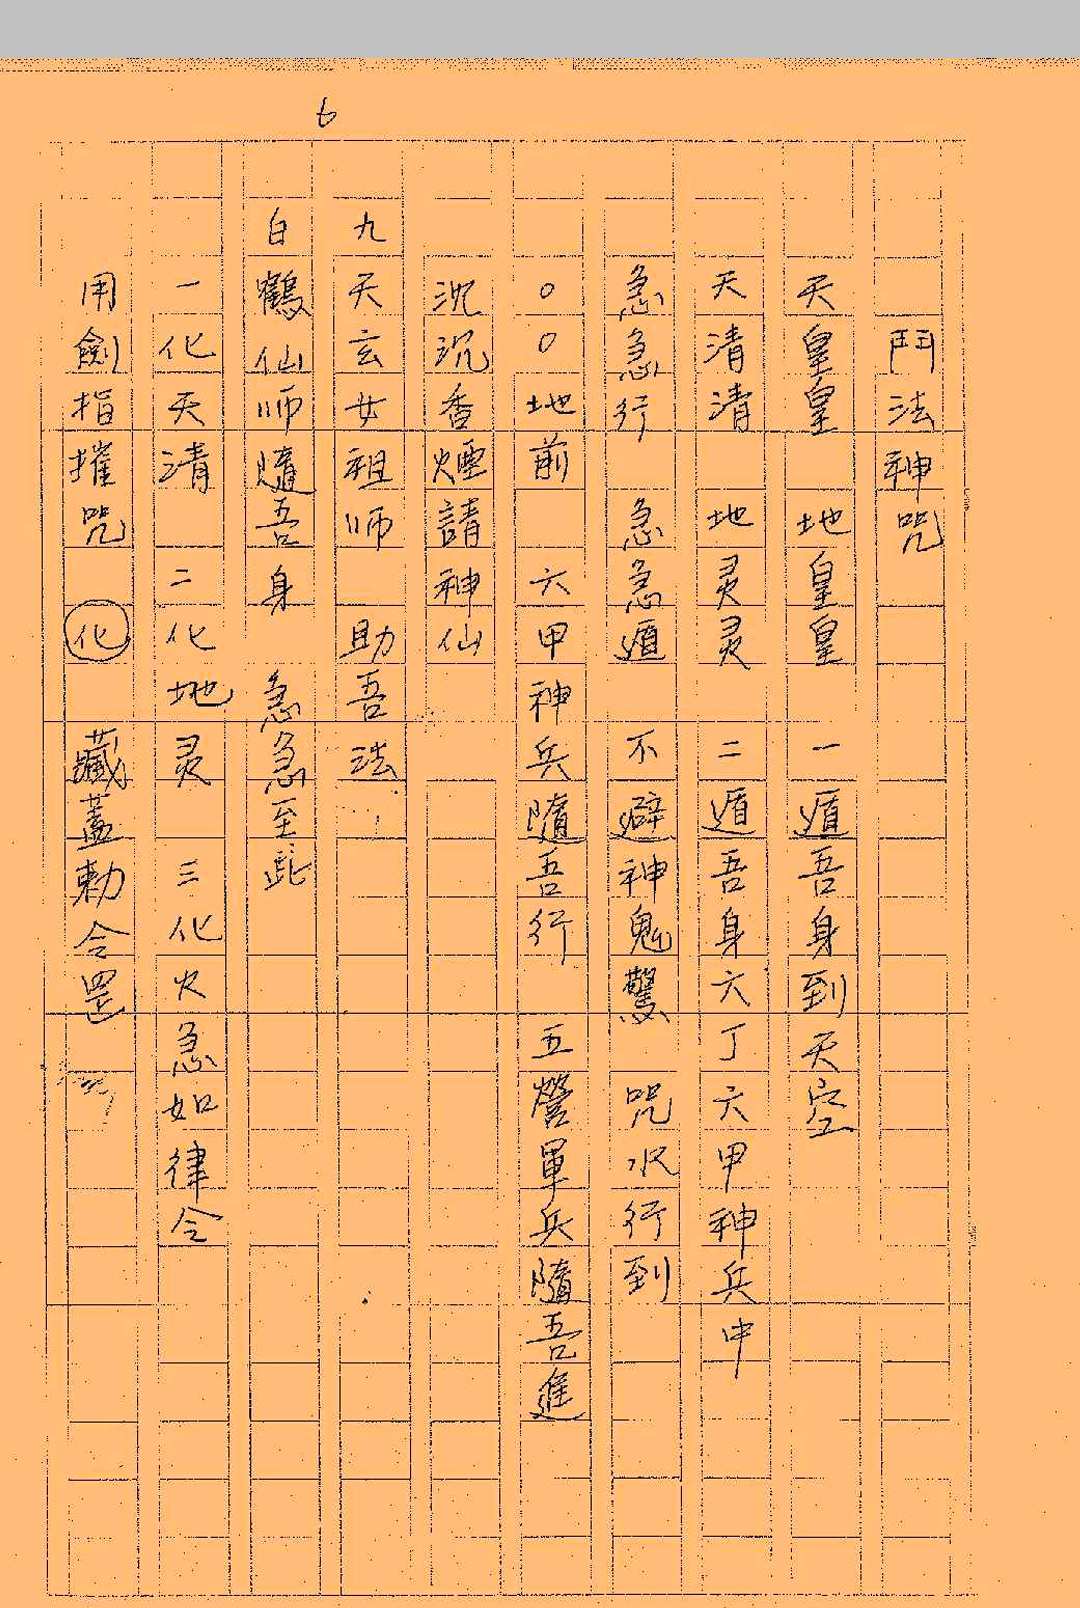 6
鬥法神咒
天皇皇 地皇皇 一遁吾身到天空
天清清 地灵灵 二遁吾身六丁六甲神兵中
急急行 急急遁 不避神鬼驚 咒水行到
○○地前 六甲神兵隨吾行 五營軍兵隨吾進
沉沉香煙請神仙
九天玄女祖师 助吾法
白鶴仙师隨吾身 急急至此
一化天清 二化地灵 三化火急如律令
用劍指摧咒 化 藏蓋勅令罡